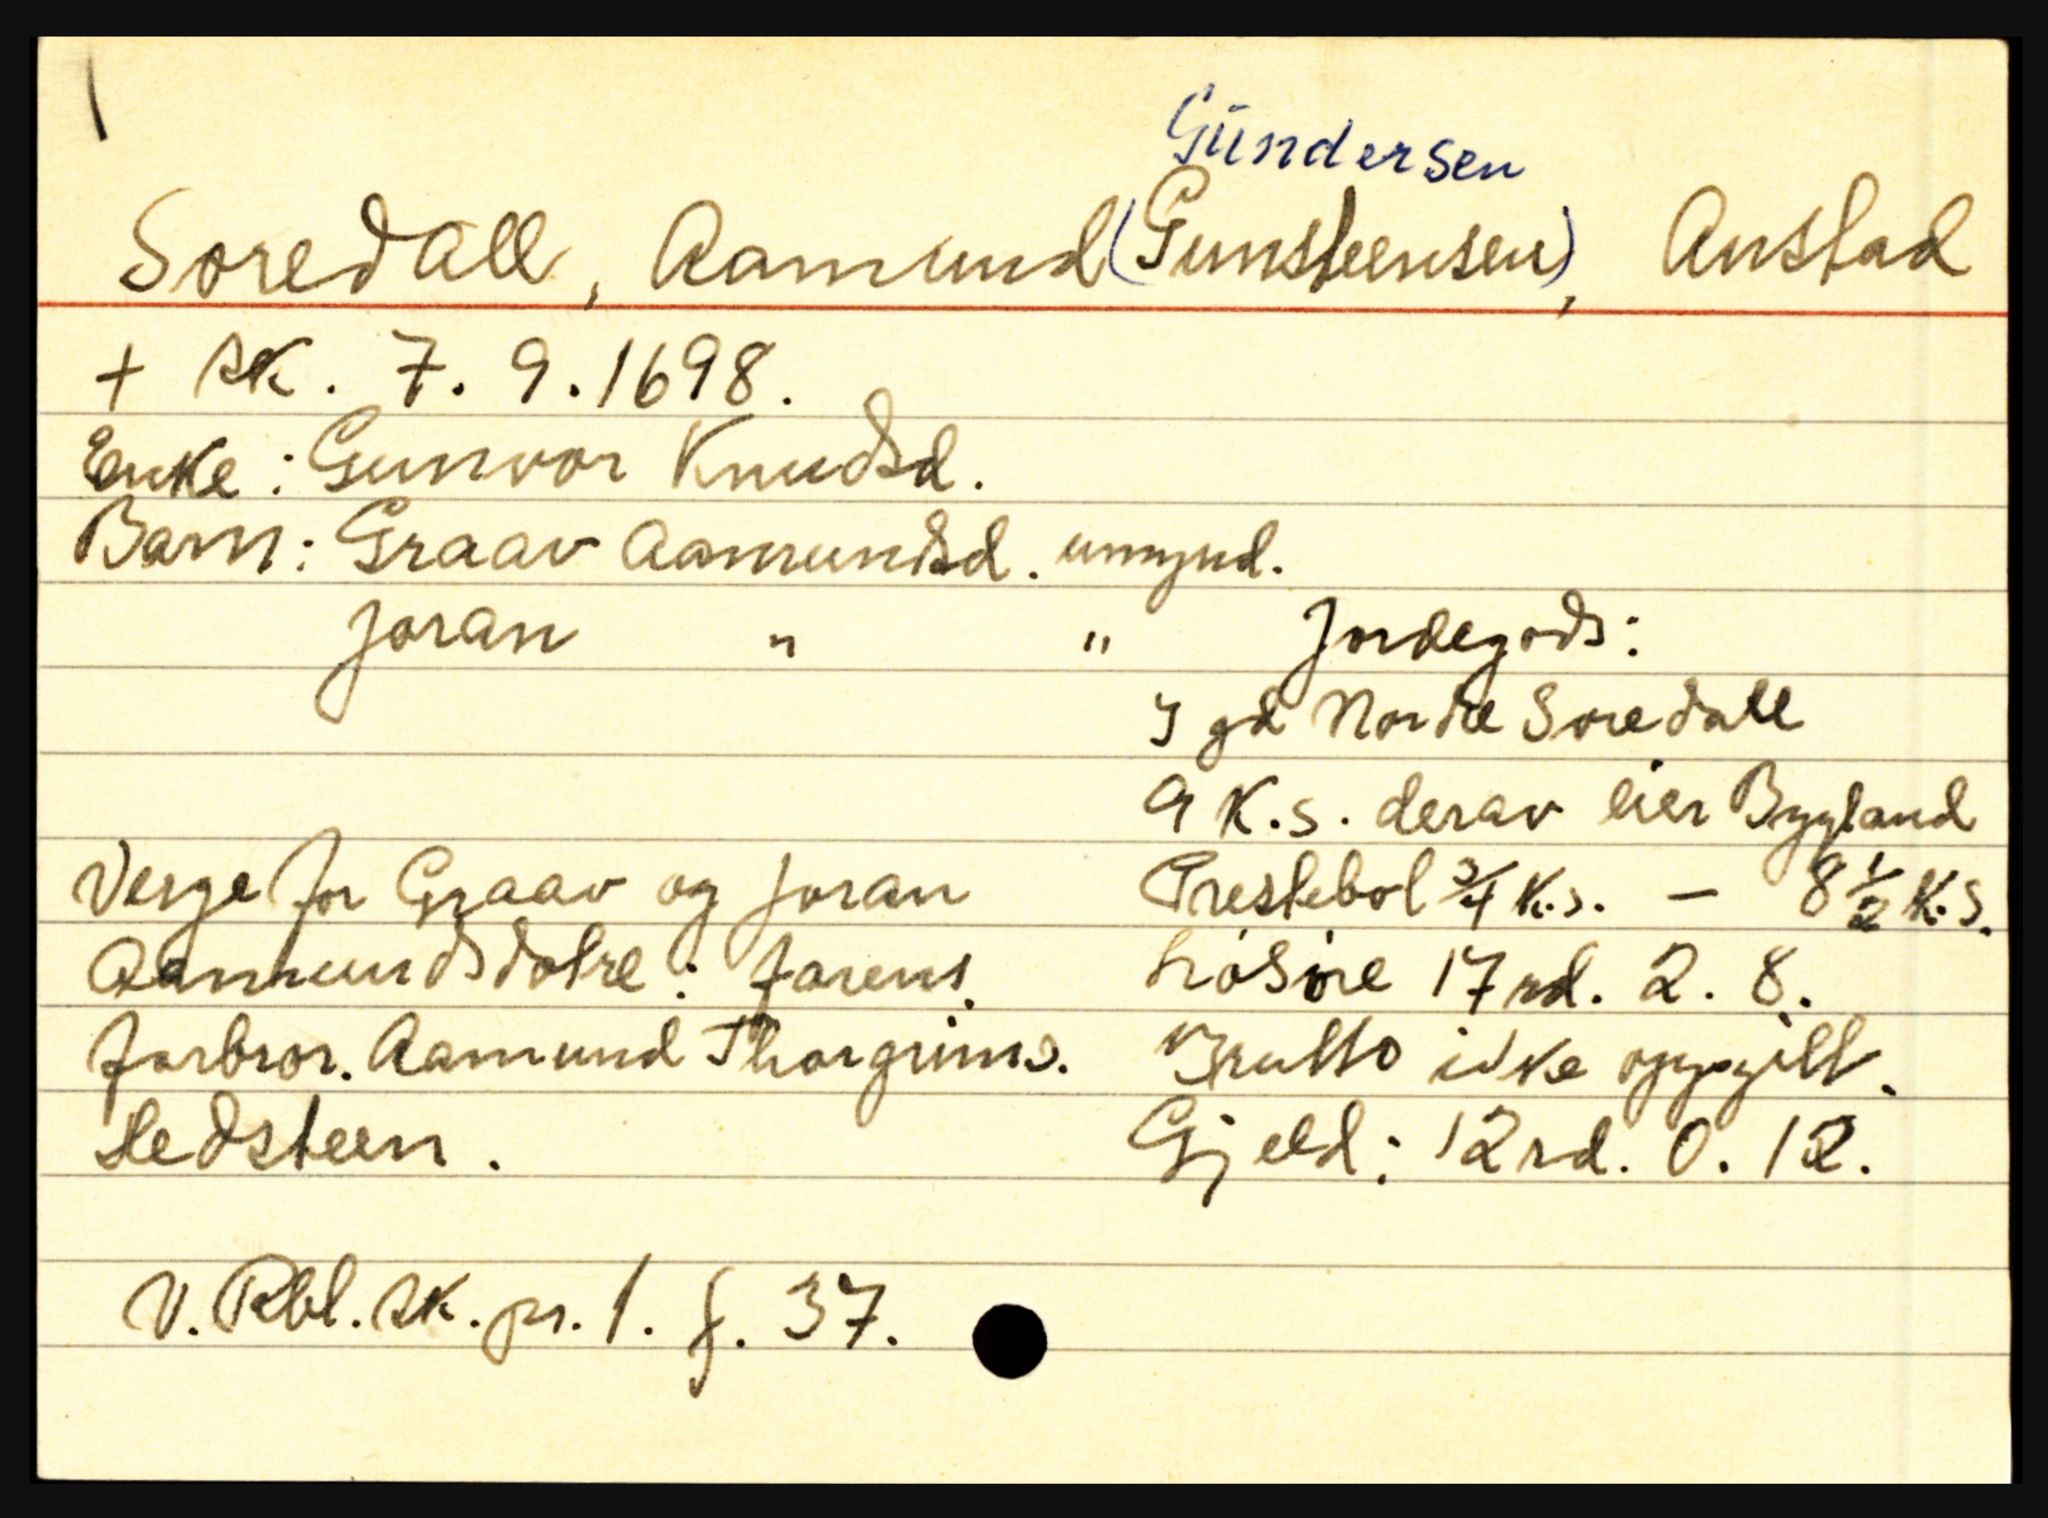 Gündersen
Soredall, Aamund (Gunsteensen), Austad
+ sk. 7. 9. 1698.
Enke: Gunvor Knudsd.
Barn: Graav Aamundsd. umynd.
Joran " "
Verge for Graav og Joran
Aamundsdotre: farens
farbror. Aamund Thorgrims.
Hedsteen.
Jordegods:
I gd Nordre Soredall
9 K.s. derav eier Bygland
Prestebol 3/4 K.s. – 8 1/2 K.s.
Lösöre 17 rd. 2. 8.
Brutto ikke oppgitt.
Gjeld: 12 rd. 0. 12.
V. Rbl. sk. pr. 1. f. 37.